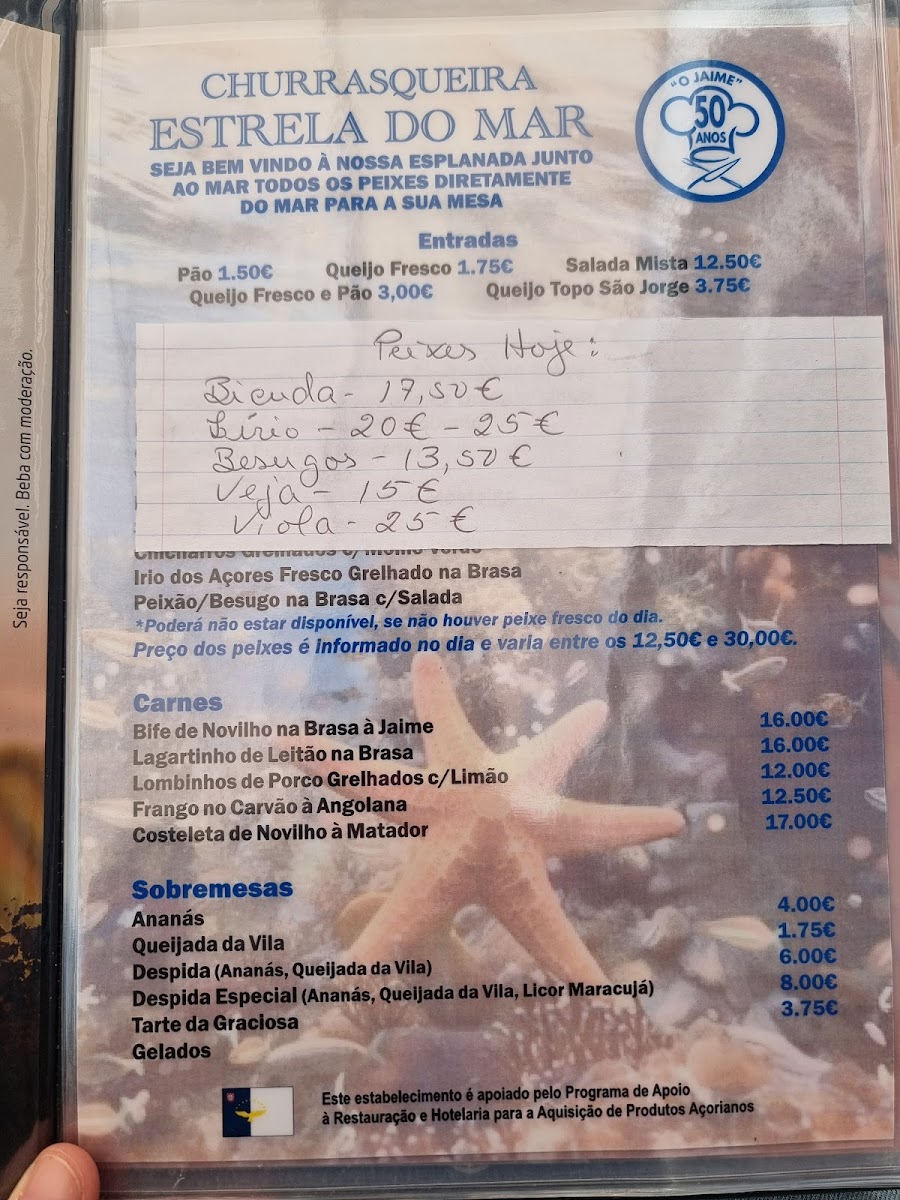 CHURRASQUEIRA
ESTRELA DO MAR
SEJA BEM VINDO À NOSSA ESPLANADA JUNTO
AO MAR TODOS OS PEIXES DIRETAMENTE
DO MAR PARA A SUA MESA
"O JAIME"
50
ANOS
Entradas
Pão 1.50€ Queijo Fresco 1.75€ Salada Mista 12.50€
Queijo Fresco e Pão 3,00€ Queijo Topo São Jorge 3.75€
Peixes Hoje:
Bicuda - 17,50€
Lírio - 20€ - 25€
Besugos - 13,50€
Veja - 15€
Viola - 25€
Chicharros Grelhados c/ Molho Verde
Irio dos Açores Fresco Grelhado na Brasa
Peixão/Besugo na Brasa c/Salada
*Poderá não estar disponível, se não houver peixe fresco do dia.
Preço dos peixes é informado no dia e varia entre os 12,50€ e 30,00€.
Carnes
Bife de Novilho na Brasa à Jaime 16.00€
Lagartinho de Leitão na Brasa 16.00€
Lombinhos de Porco Grelhados c/Limão 12.00€
Frango no Carvão à Angolana 12.50€
Costeleta de Novilho à Matador 17.00€
Sobremesas
Ananás 4.00€
Queijada da Vila 1.75€
Despida (Ananás, Queijada da Vila) 6.00€
Despida Especial (Ananás, Queijada da Vila, Licor Maracujá) 8.00€
Tarte da Graciosa 3.75€
Gelados
Este estabelecimento é apoiado pelo Programa de Apoio
à Restauração e Hotelaria para a Aquisição de Produtos Açorianos
Seja responsável. Beba com moderação.